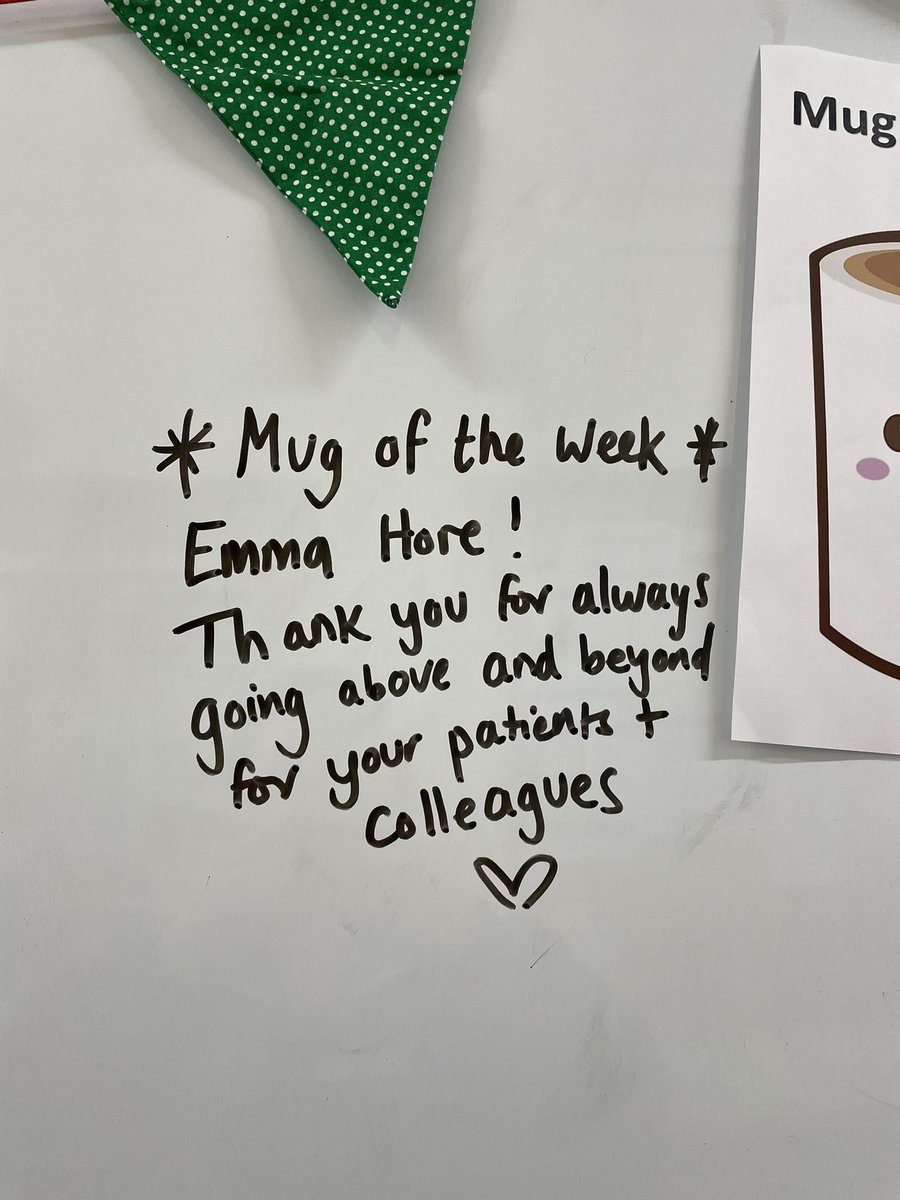 Mug
* Mug of the week *
Emma Hore!
Thank you for always
going above and beyond
for your patients +
Colleagues
♡